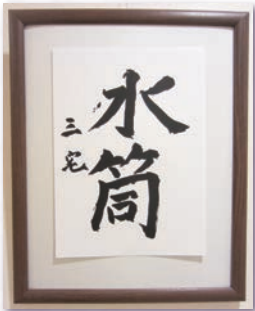 水筒
三宅